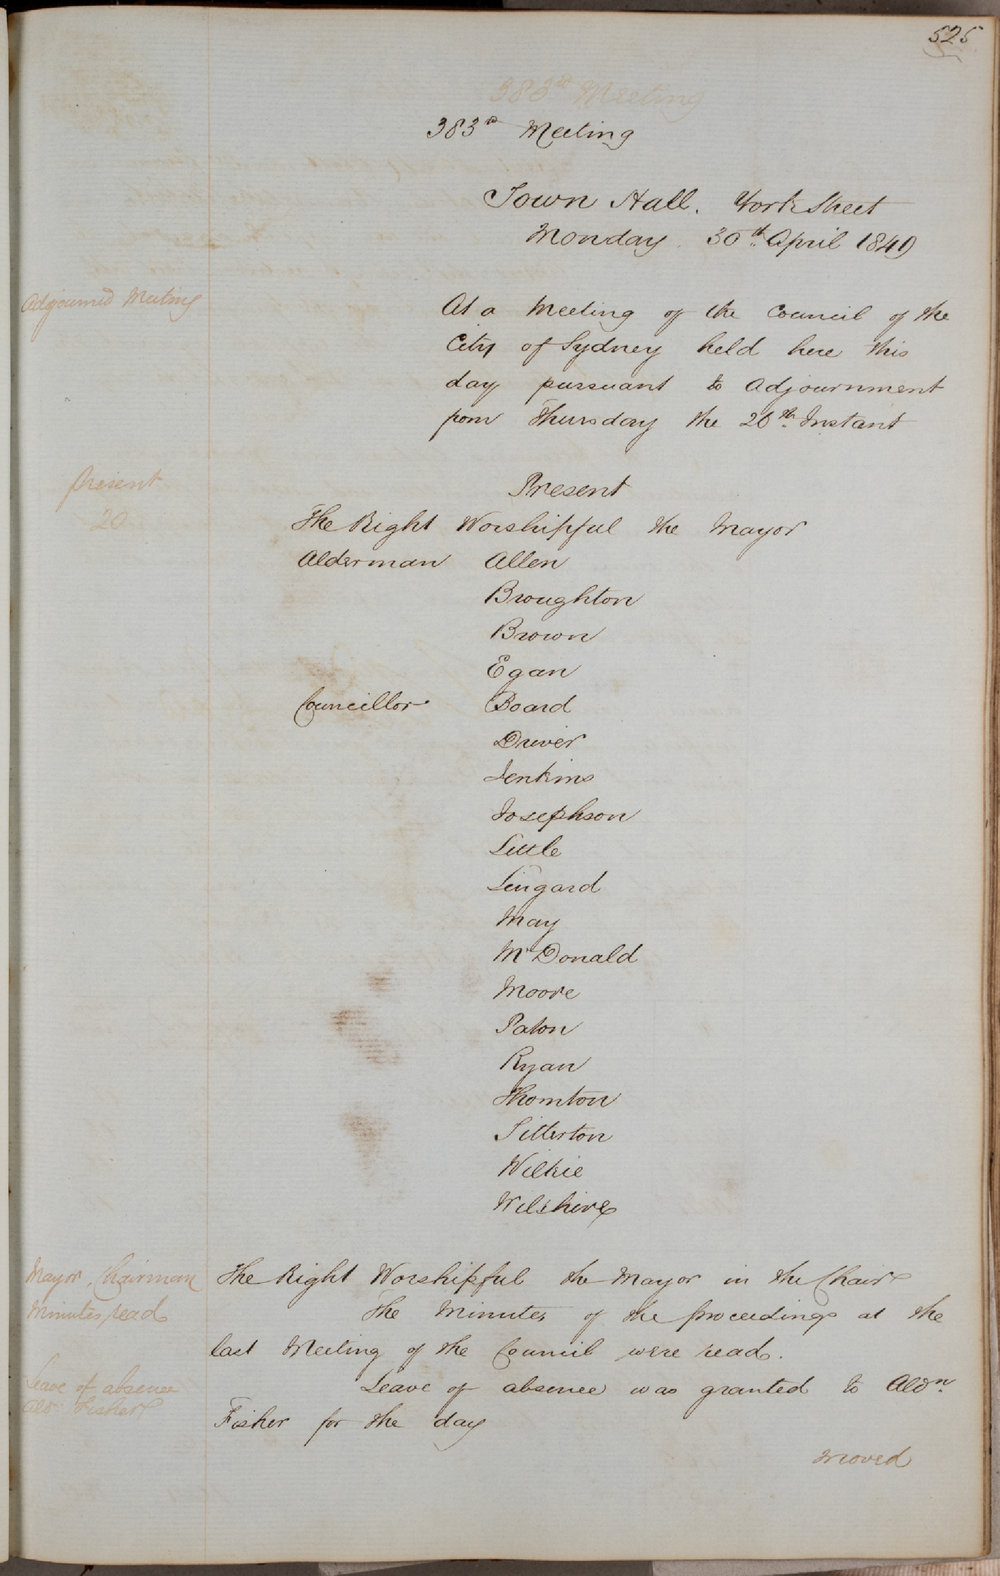 525
383rd Meeting
383rd Meeting
Town Hall. York Street
Monday. 30th April 1849
Adjourned Meeting
At a Meeting of the Council of the
City of Sydney held here this
day pursuant to adjournment
from Thursday the 26th Instant
Present
20
Present
The Right Worshipful the Mayor
Alderman Allen
Broughton
Brown
Egan
Councillor Board
Driver
Jenkins
Josephson
Little
Lingard
May
McDonald
Moore
Paton
Ryan
Thornton
Titterton
Wilkie
Wilshire
Mayor Chairman
The Right Worshipful the Mayor in the Chair
Minutes read
The Minutes of the proceedings at the
last Meeting of the Council were read.
Leave of absence
Ald: Fisher
Leave of absence was granted to Aldn.
Fisher for the day
Moved